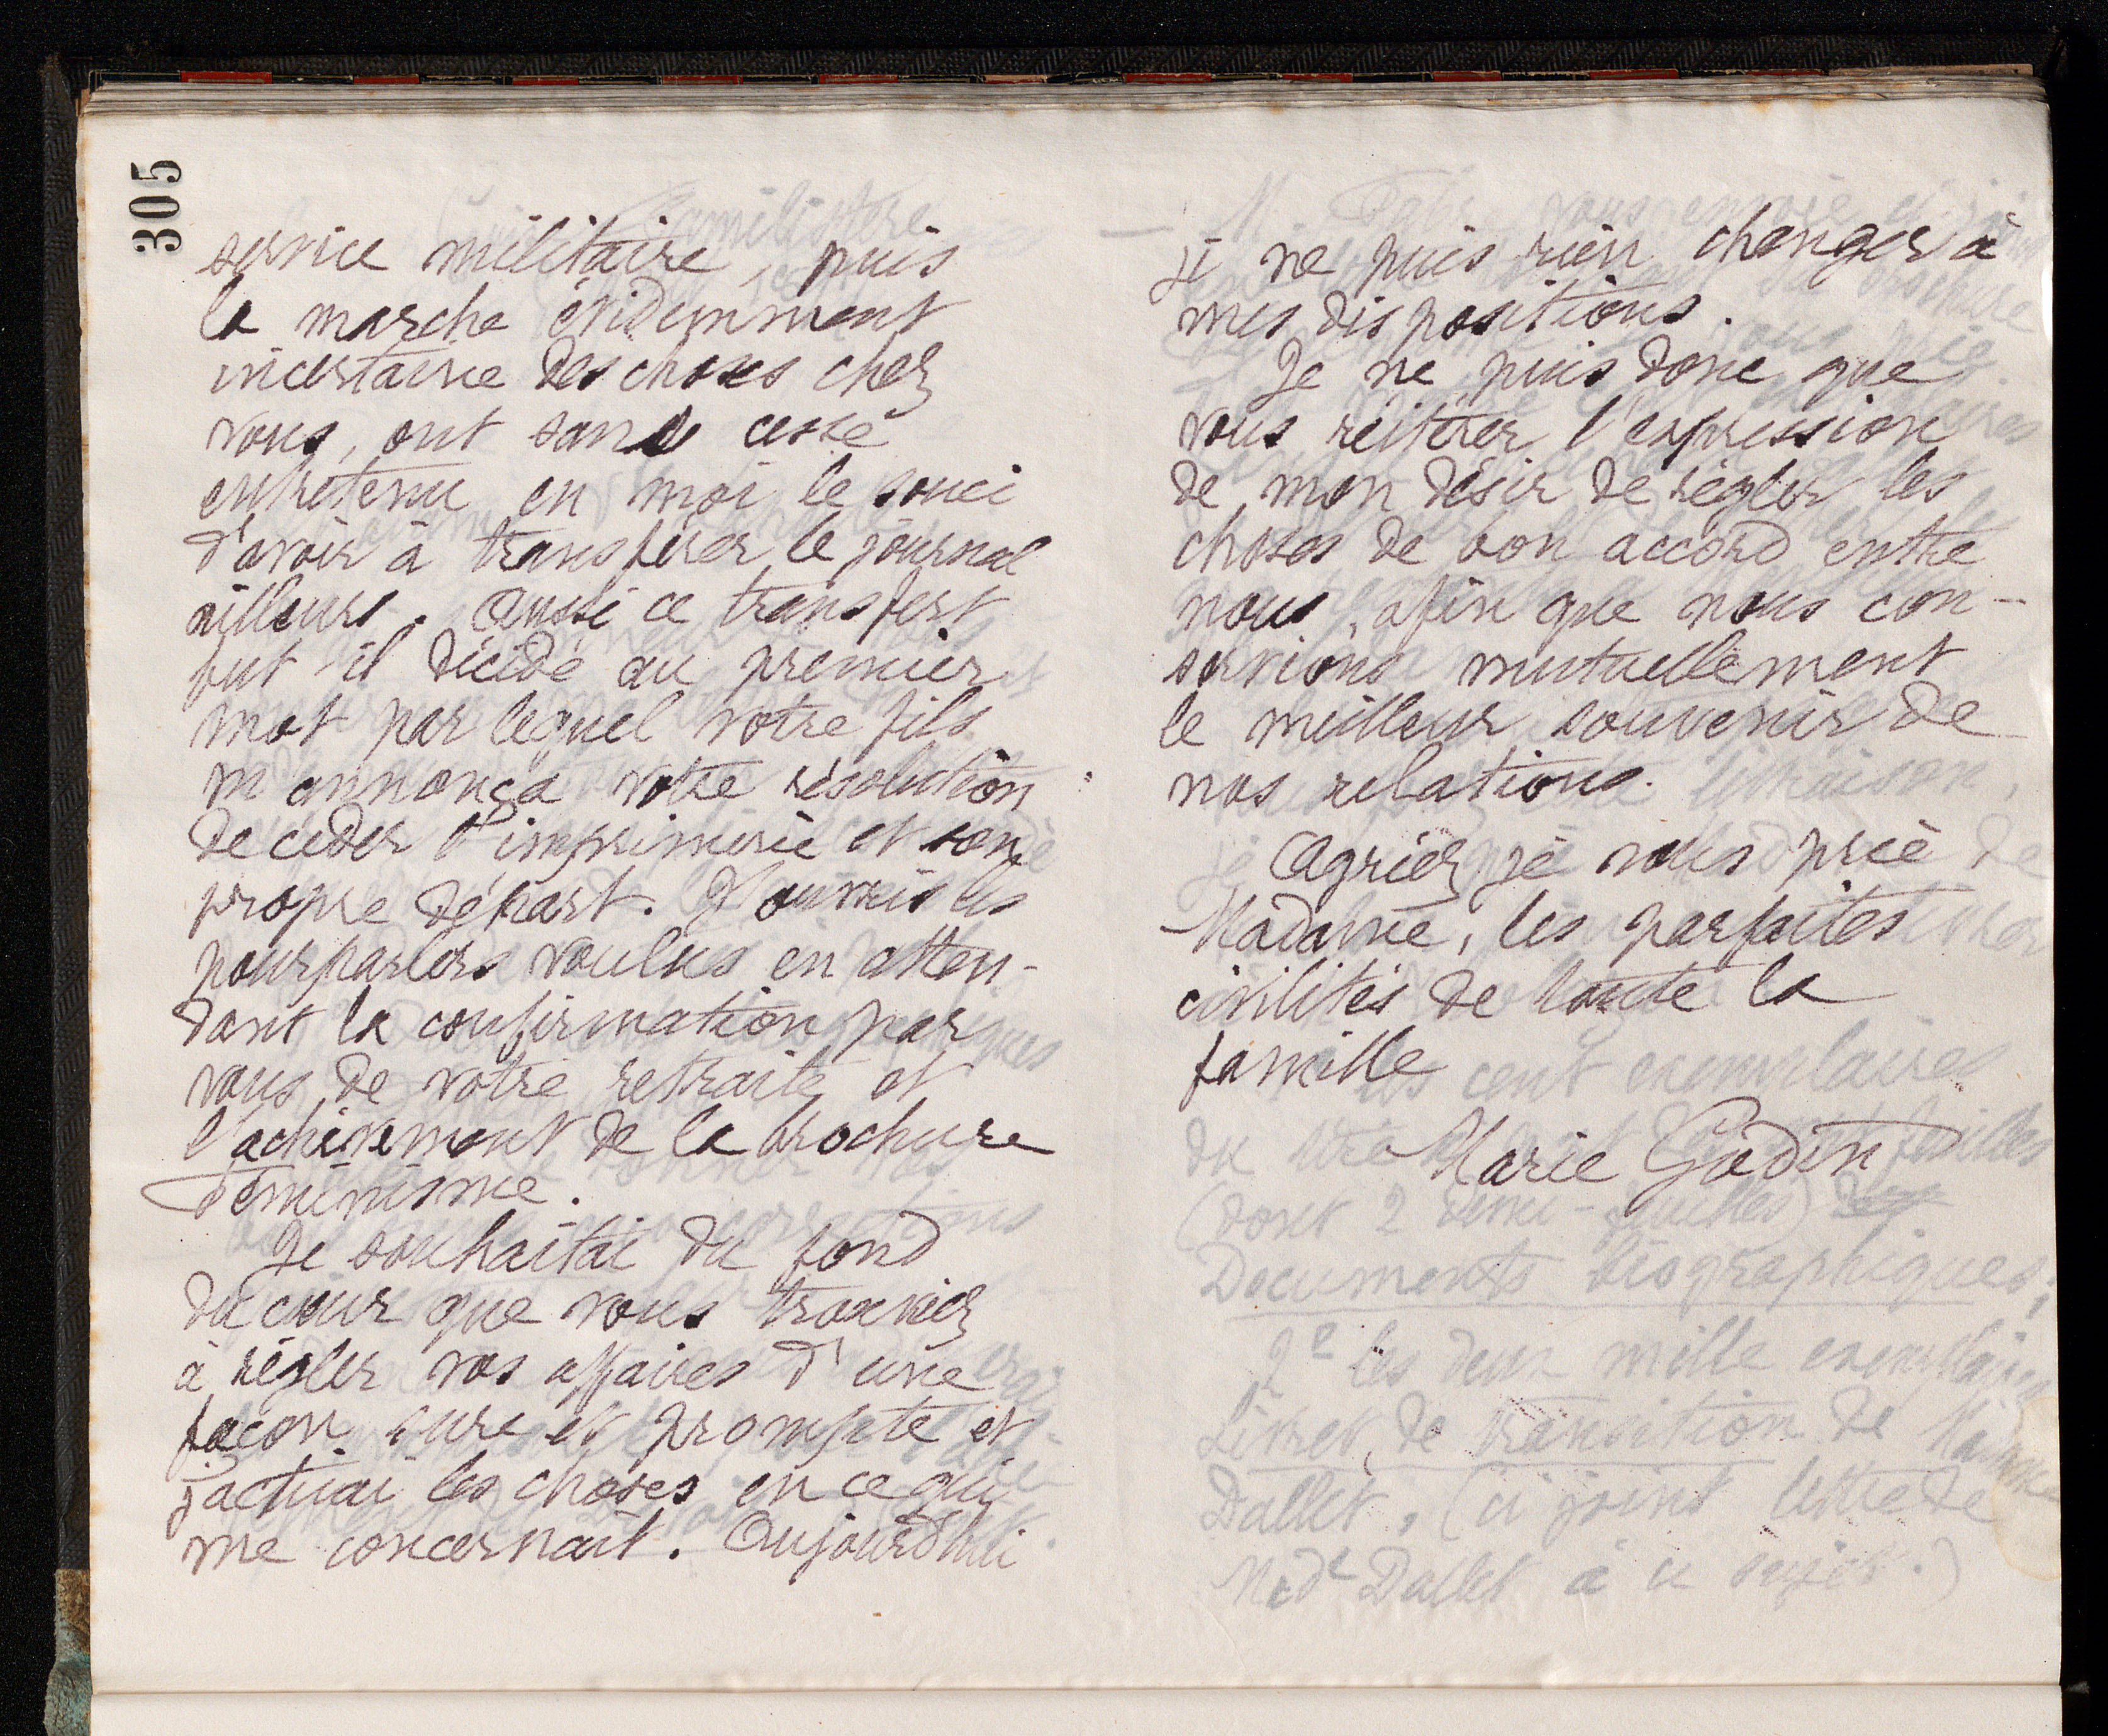 305
service militaire, puis
la marche évidemment
incertaine des choses chez
vous, ont sans cesse
entretenu en moi le souci
d'avoir à transférer le journal
ailleurs. Aussi ce transfert
fut-il décidé au premier
mot par lequel votre fils
m'annonça votre résolution
de céder l'imprimerie et son
propre départ. J'ouvris les
pourparlers voulus en atten-
dant la confirmation par
vous de votre retraite et
l'achèvement de la brochure
Féminisme.
Je souhaitai du fond
du cœur que vous trouviez
à régler vos affaires d'une
façon sure et prompte et
j'activai les choses en ce qui
me concernait. Aujourd'hui
je ne puis rien changer à
mes dispositions.
Je ne puis donc que
vous réitérer l'expression
de mon désir de régler les
choses de bon accord entre
nous, afin que nous con-
servions mutuellement
le meilleur souvenir de
nos relations.
Agréez, je vous prie
Madame, les parfaites
civilités de toute la
famille
Marie Godin
(dont 2 demi-feuilles)
Documents biographiques;
2º les deux mille exemplaires
Livret de transition de Madame
Dallet, (ci joint lettre de
Mde Dallet à ce sujet.)